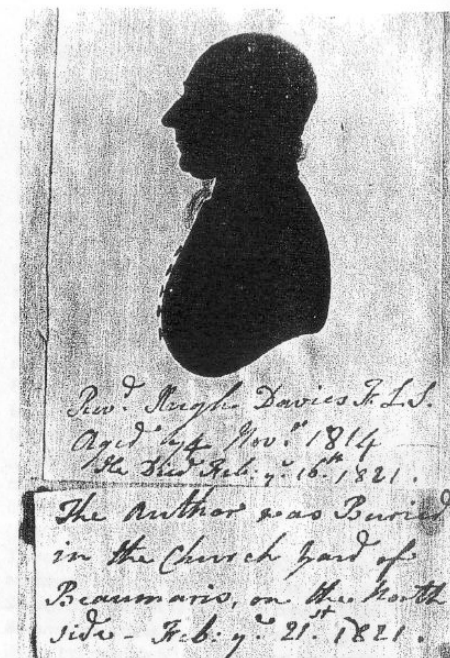 Revd. Hugh Davies F.L.S.
Aged 74 Novr. 1814
He Died Feb: ye. 16th. 1821.
The Author was Buried
in the Church yard of
Beaumaris, on the North
side - Feb: ye. 21st. 1821.